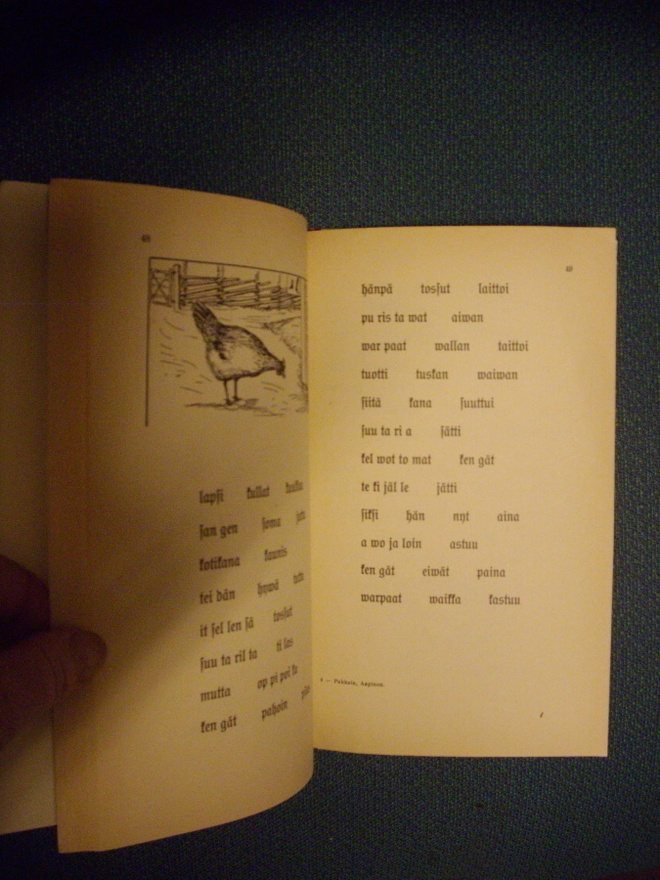 48
lapsi kullat
san gen soma
kotikana kaunis
tei dän hywä
it sel len sä tossut
suu ta ril ta ti las
mutta op pi poi ka
ken gät pahoin
49
hänpä tossut laittoi
pu ris ta wat aiwan
war paat wallan taittoi
tuotti tuskan waiwan
siitä kana suuttui
suu ta ri a sätti
kel wot to mat ken gät
te ki jäl le jätti
siksi hän nyt aina
a wo ja loin astuu
ken gät eiwät paina
warpaat waikka kastuu
4 — Pakkala, Aapinen.